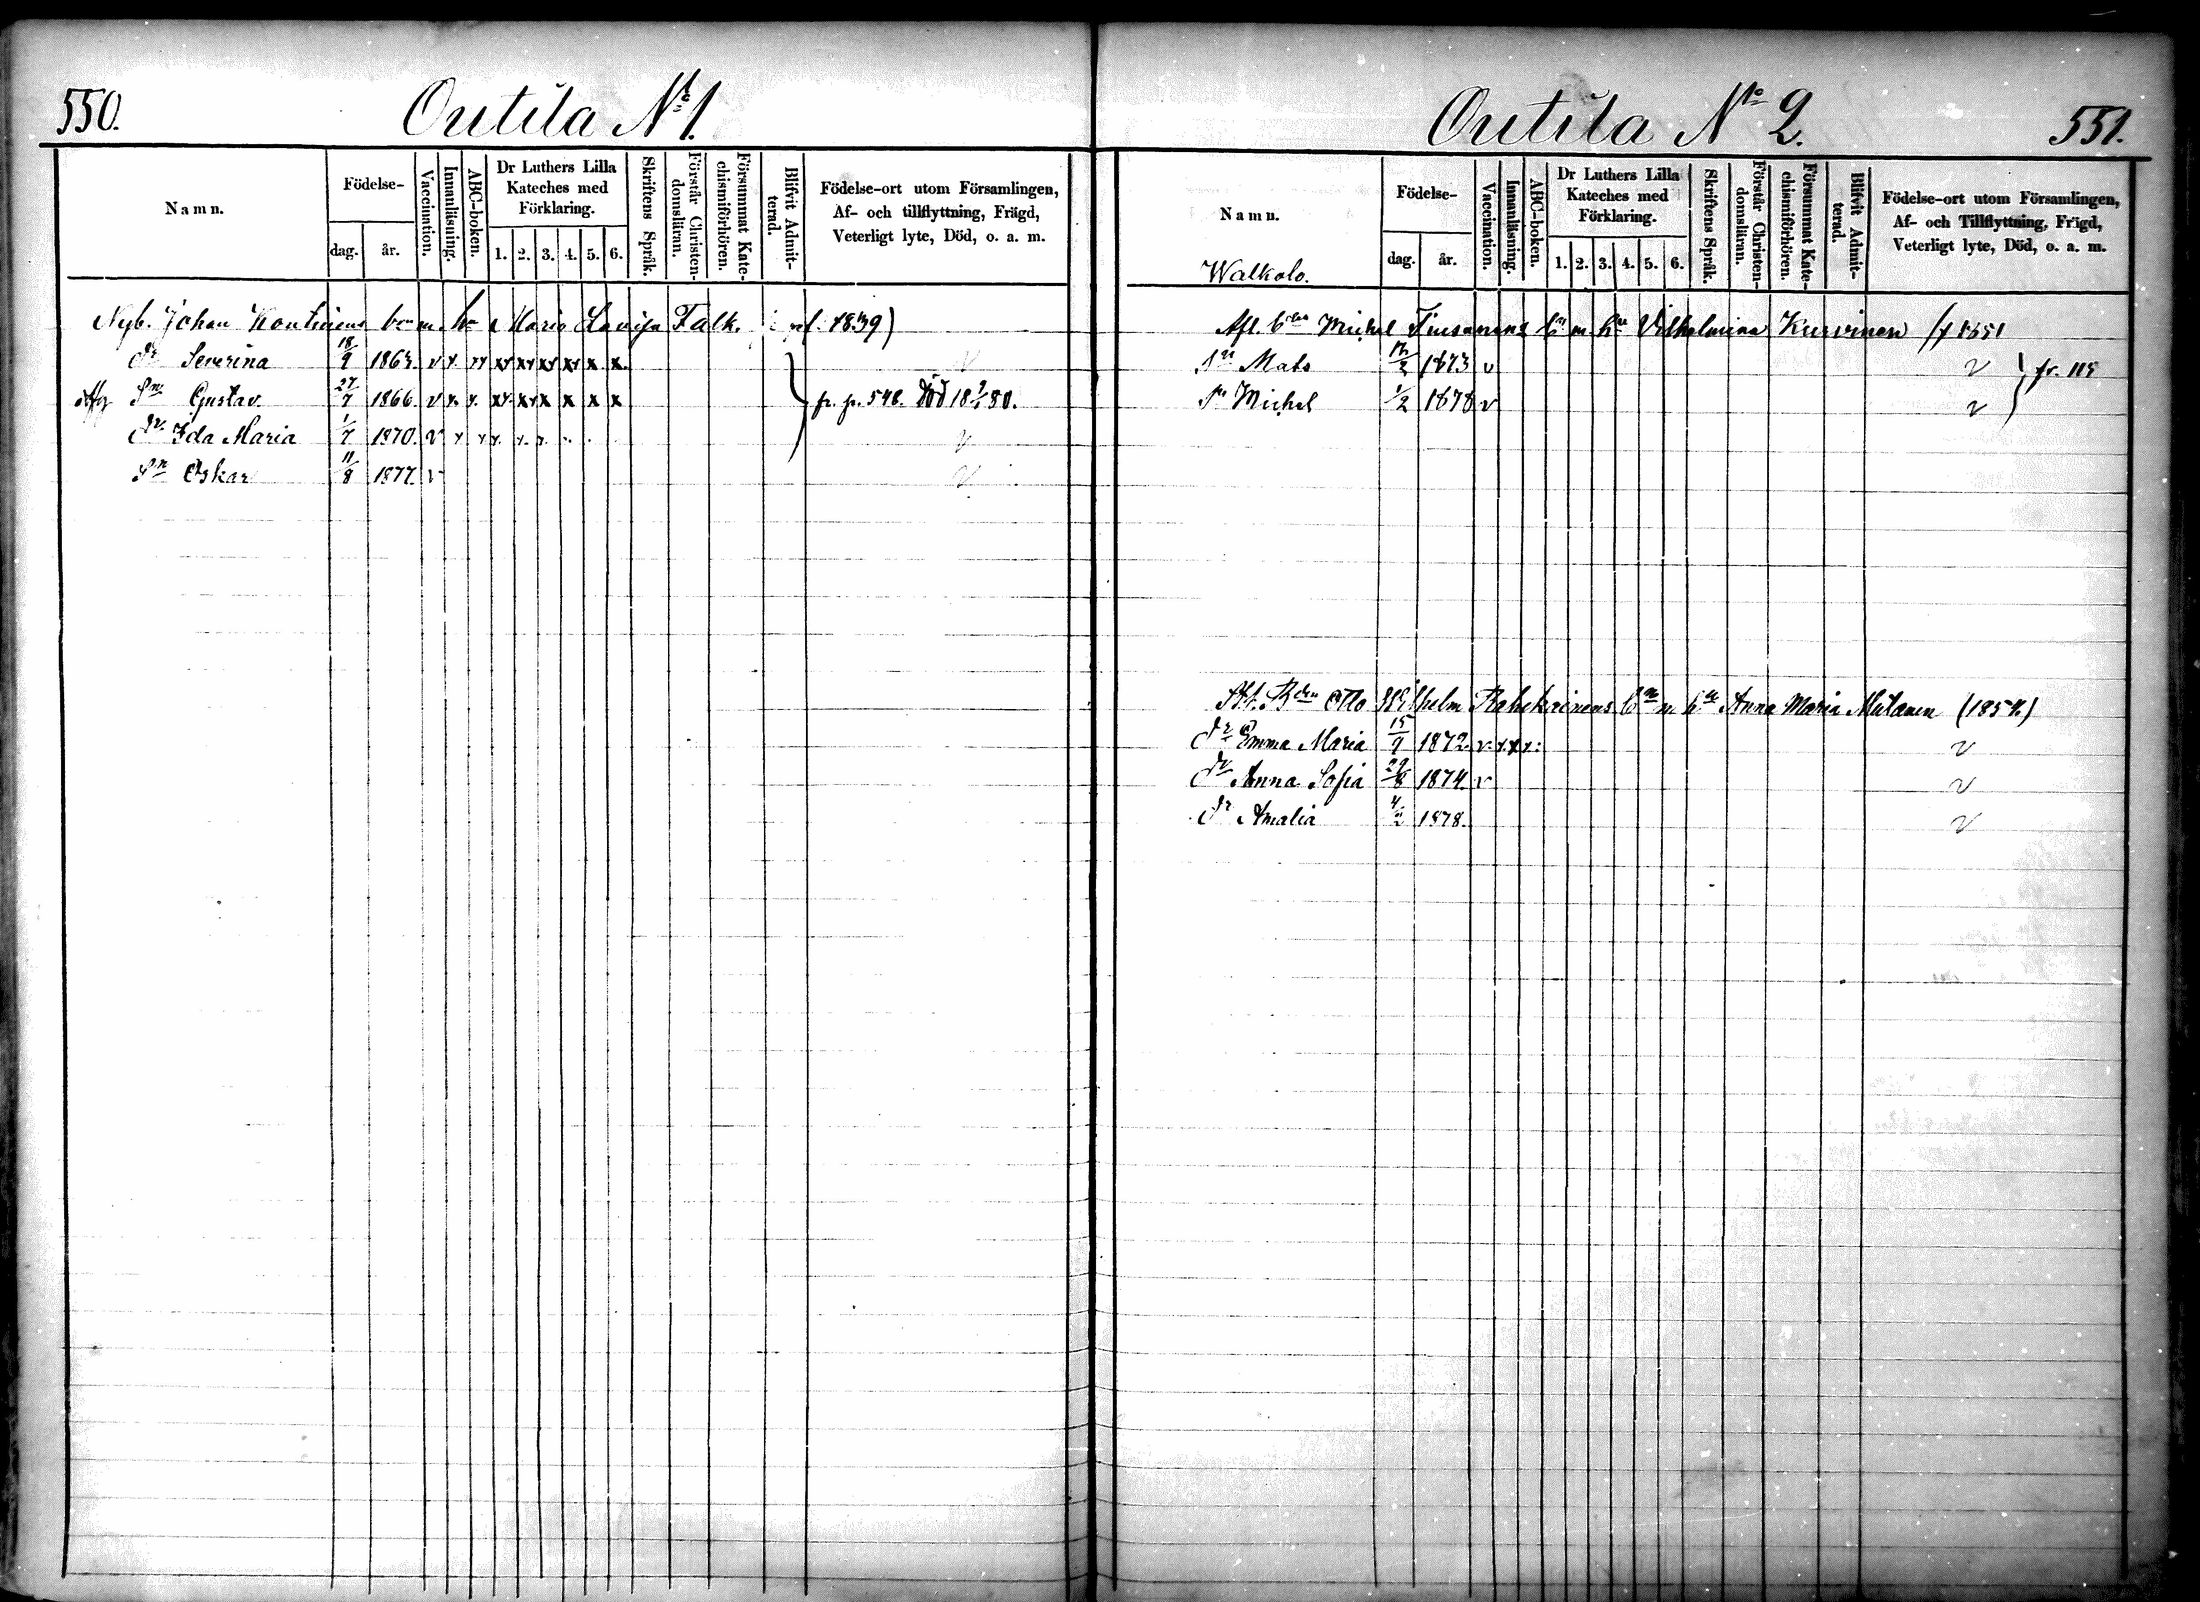 550.
Outila No 1.
Namn.
Födelse-
dag.
år.
Vaccination.
Innanläsning.
ABC-boken.
Dr Luthers Lilla
Kateches med
Förklaring.
1. 2. 3. 4. 5. 6.
Skriftens Språk.
Förstår Christen-
domsläran.
Försummat Kate-
chismiförhören.
Blifvit Admit-
terad.
Födelse-ort utom Församlingen,
Af- och tillflyttning, Frägd,
Veterligt lyte, Död, o. a. m.
Nyb. Johan bn m. hu Maria Lovisa Falk. f. 1839)
dr Severina 18/9 1863. v x. xx xx xx xx xx x x. v
Sn Gustav 27/7 1866. v x. x. xx. xx x x x x fr. p. 548. Död 1880.
dr Ida Maria 1/7 1870. v x x x x. x. x. v
Sn Oskar 11/8 1877. v v
Outila No 2.
551.
Namn.
Walkolo.
Födelse-
dag.
år.
Vaccination.
Innanläsning.
ABC-boken.
Dr Luthers Lilla
Kateches med
Förklaring.
1. 2. 3. 4. 5. 6.
Skriftens Språk.
Förstår Christen-
domsläran.
Försummat Kate-
chismiförhören.
Blifvit Admit-
terad.
Födelse-ort utom Församlingen,
Af- och Tillflyttning, Frägd,
Veterligt lyte, Död, o. a. m.
Afl. bdn Michel Tiusanens bn m hu Vilhelmina Kurvinen (f 1851
Sn Mats 1873 v v
Sn Michel 1/2 1878 v v
fr. 115
Bden Otto Wilhelm bn m hu Anna Maria Mutanen (1854.)
dr Emma Maria 15/9 1872. v. x x x: v
dr Anna Sofia 29/8 1874. v v
dr Amalia 4/2 1878. v